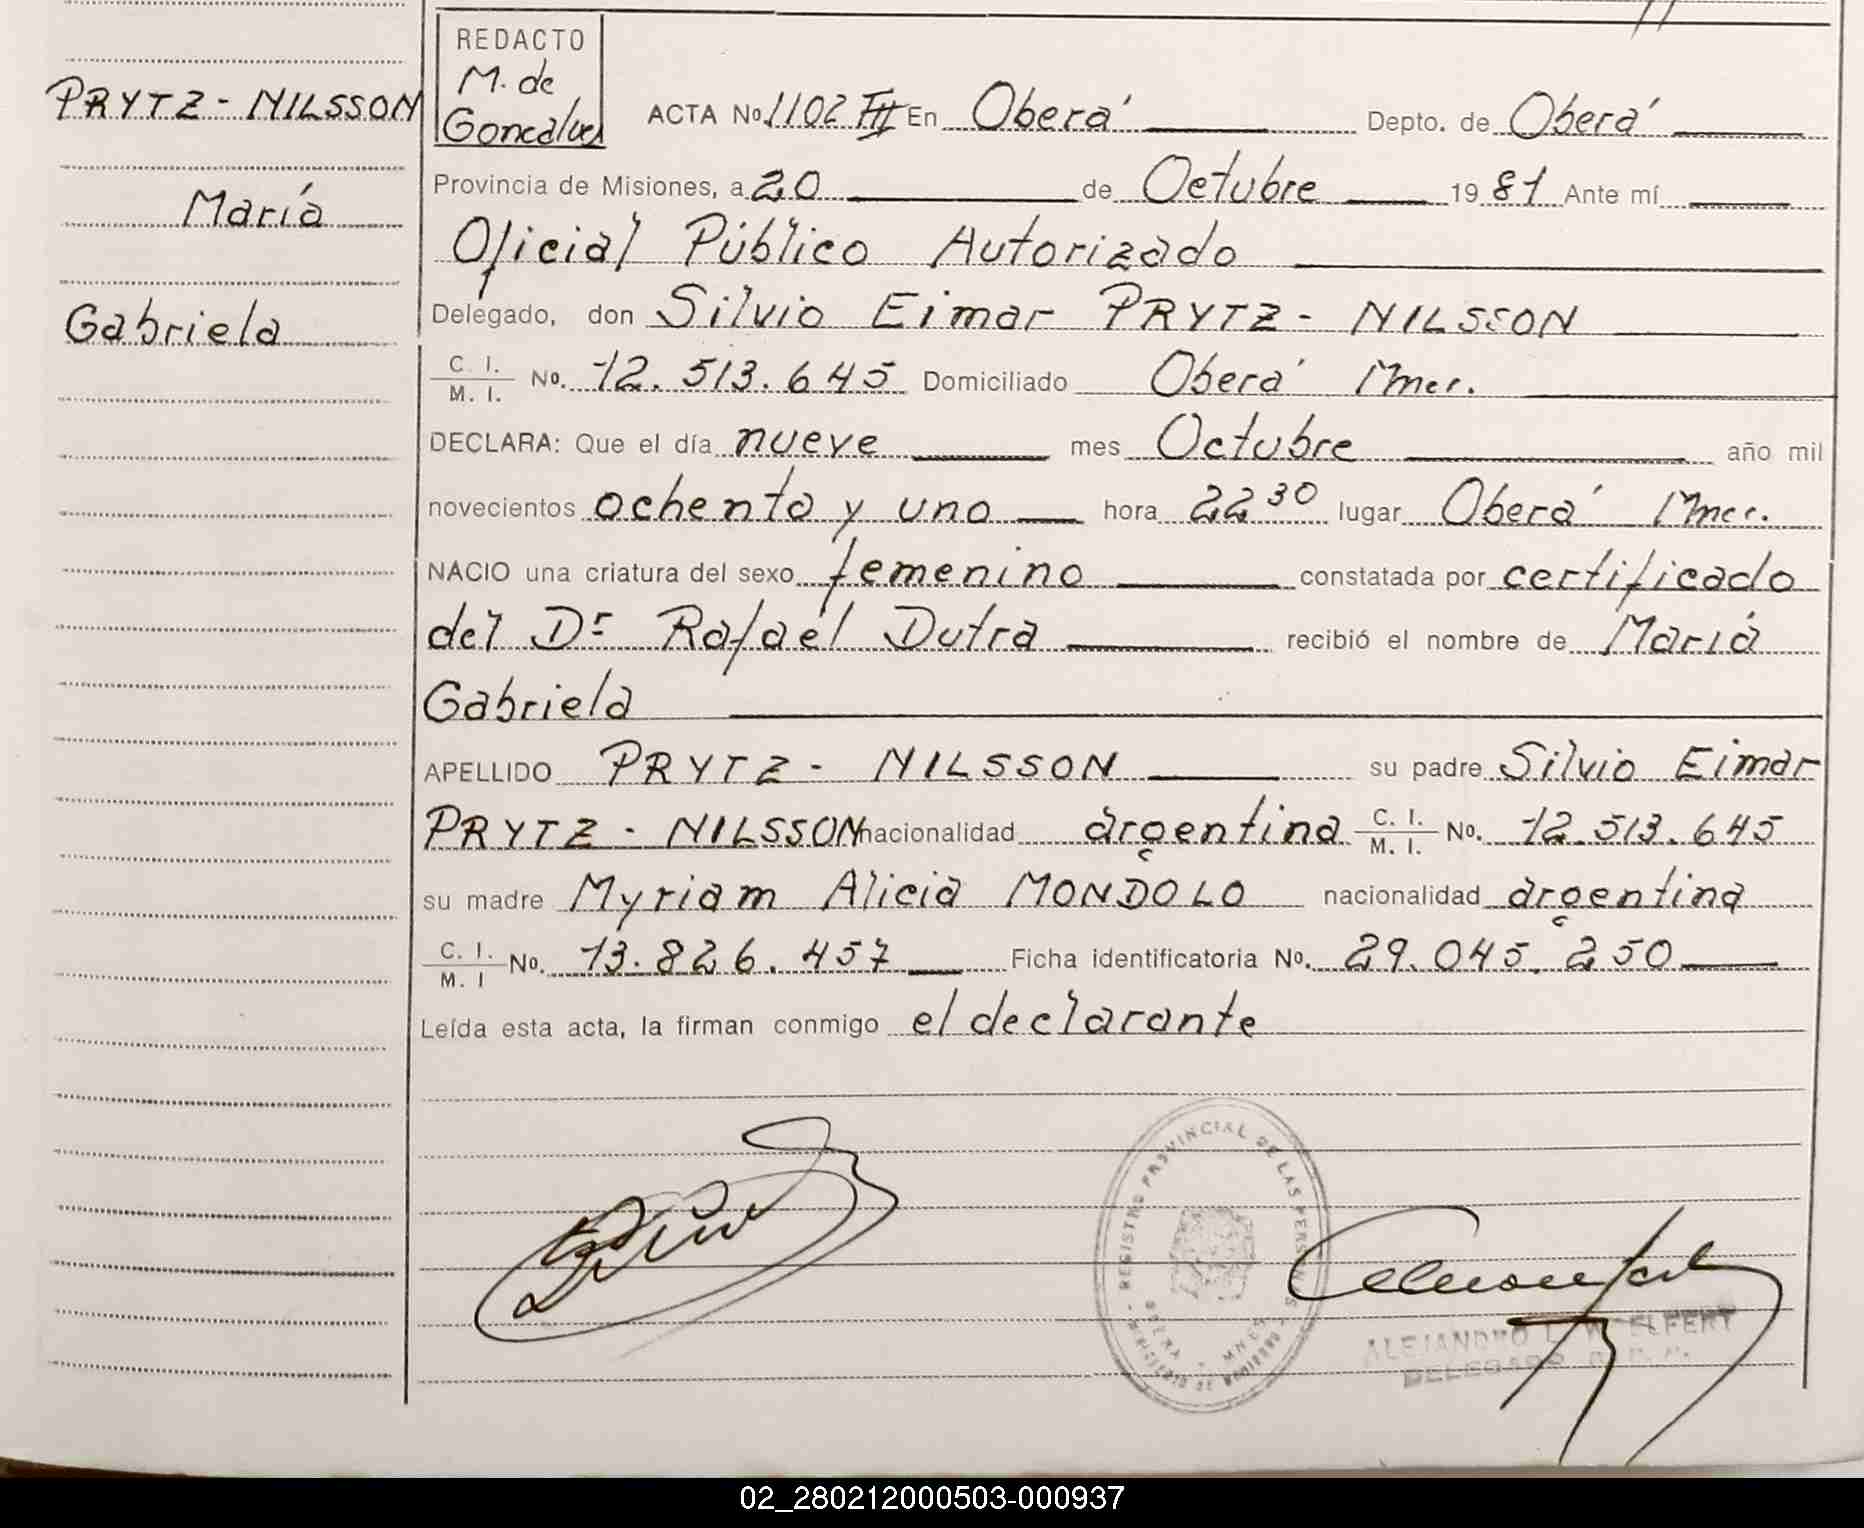 REDACTO
M. de
Goncalves
PRYTZ - NILSSON
María
Gabriela
ACTA No. 1102 T III En Oberá Depto. de Oberá
Provincia de Misiones, a 20 de Octubre 19 81 Ante mí
Oficial Público Autorizado
Delegado, don Silvio Eimar PRYTZ - NILSSON
C. I. / M. I. No. 12.513.645 Domiciliado Oberá Mnes.
DECLARA: Que el día nueve mes Octubre año mil
novecientos ochenta y uno hora 22 30 lugar Oberá Mnes.
NACIO una criatura del sexo femenino constatada por certificado
del Dr Rafael Dutra recibió el nombre de María
Gabriela
APELLIDO PRYTZ - NILSSON su padre Silvio Eimar
PRYTZ - NILSSON nacionalidad argentina C. I. / M. I. No. 12.513.645
su madre Myriam Alicia MONDOLO nacionalidad argentina
C. I. / M. I No. 13.826.457 Ficha identificatoria No. 29.045.250
Leída esta acta, la firman conmigo el declarante
REGISTRO PROVINCIAL DE LAS PERSONAS
ALEJANDRO L. WELFERT
DELEGADO
02_280212000503-000937